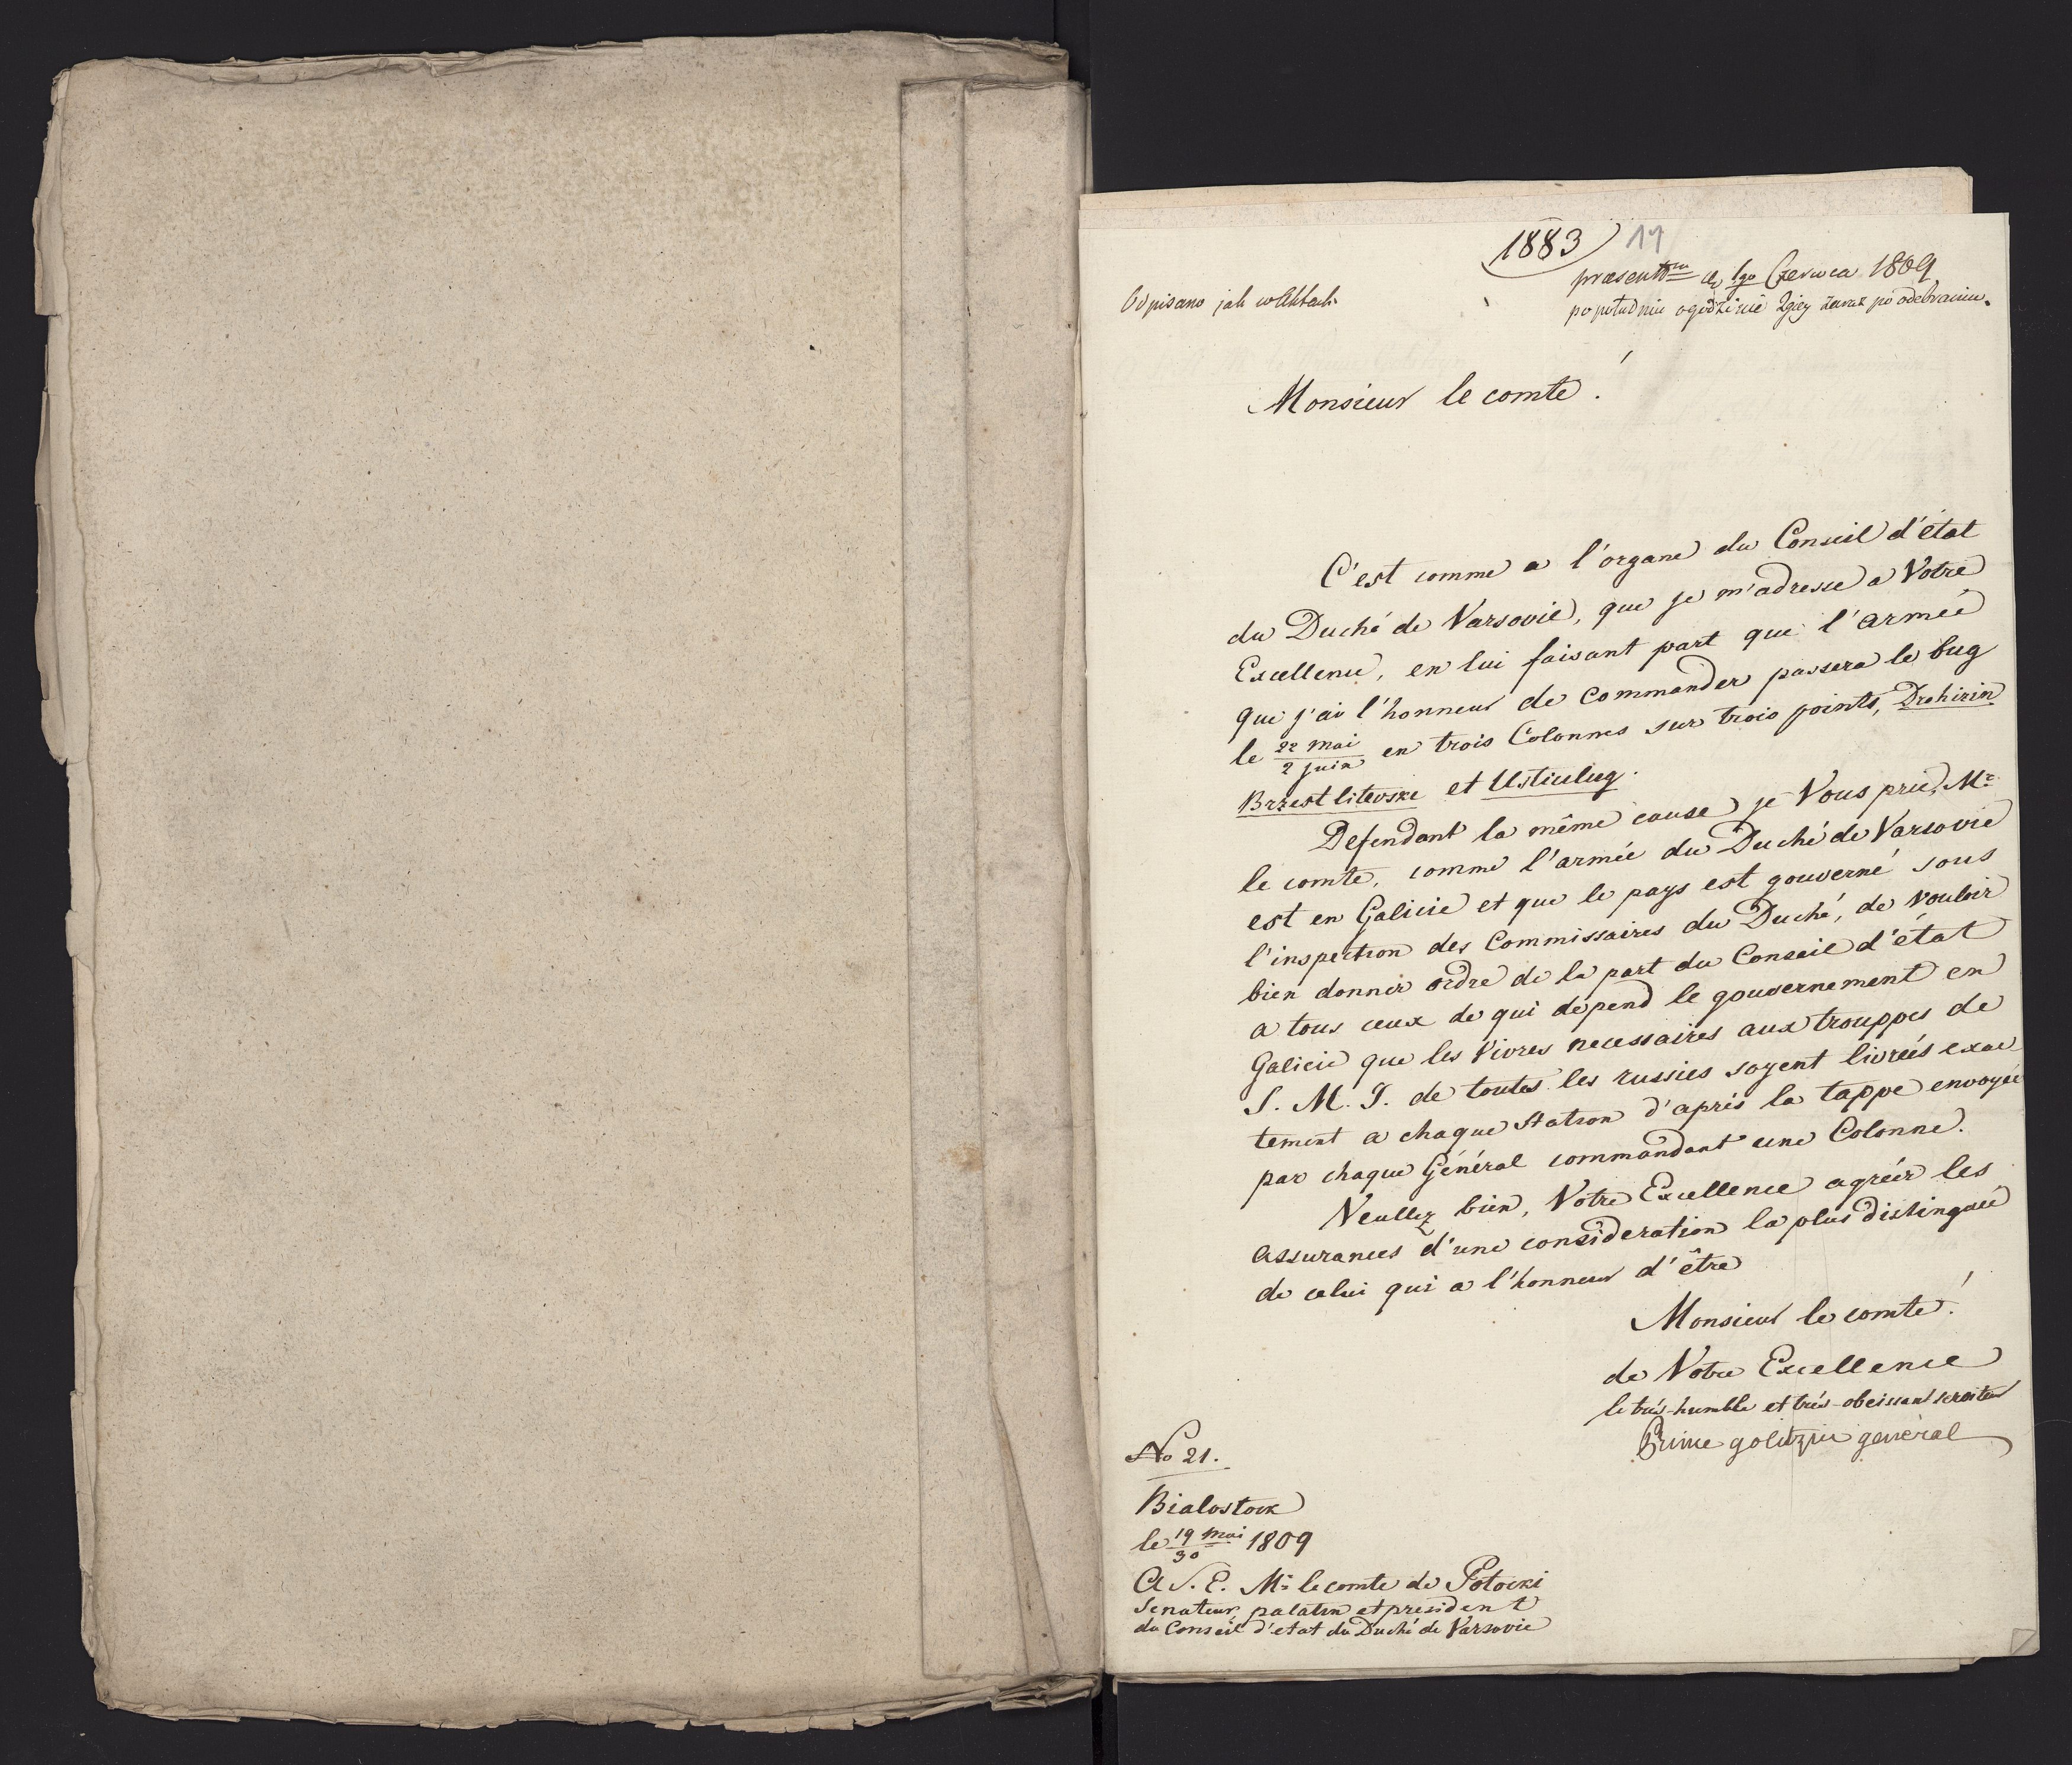 1883 11
præsent d. 1go Czerwca 1809
Odpisano jak w Aktach
popołudniu o godzinie 2giey zaraz po odebraniu.
Monsieur le comte!
C'est comme a l'organe du Conseil d'état
du Duché de Varsovie, que je m'adresse a Votre
Excellence, en lui faisant part que l'armée
que j'ai l'honneur de commander passera le bug
le 22 mai / 2 juin en trois Colonnes sur trois points, Drohizin
Brzest litevski et Ustiulug.
Defendant la même cause je Vous prie, Mr
le comte, comme l'armée du Duché de Varsovie
est en Galicie et que le pays est gouverné sous
l'inspection des Commissaires du Duché, de vouloir
bien donner ordre de la part du Conseil d'état
a tous ceux de qui dépend le gouvernement en
Galicie que les Vivres necessaires aux trouppes de
S. M. I. de toutes les russies soyent livreés exac
tement a chaque Station d'après la tappe envoyée
par chaque Général commandant une Colonne.
Veullez bien, Votre Excellence agréér les
assurances d'une consideration la plus distinguée
de celui qui a l'honneur d'être
Monsieur le comte!
de Votre Excellence
le très-humble et très-obeissant serviteur
Prince golitzin général
No 21.
Bialostock
le 19/30 mai 1809
A S. E. Mr le comte de Potocki
Senateur, palatin et president
du Conseil d'etat du Duché de Varsovie